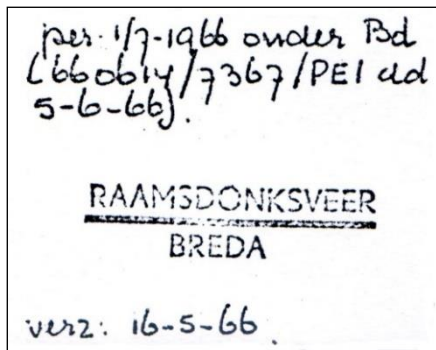 per 1/7-1966 onder Bd
(660614/7367/PEI dd
5-6-66).
RAAMSDONKSVEER
BREDA
verz: 16-5-66.